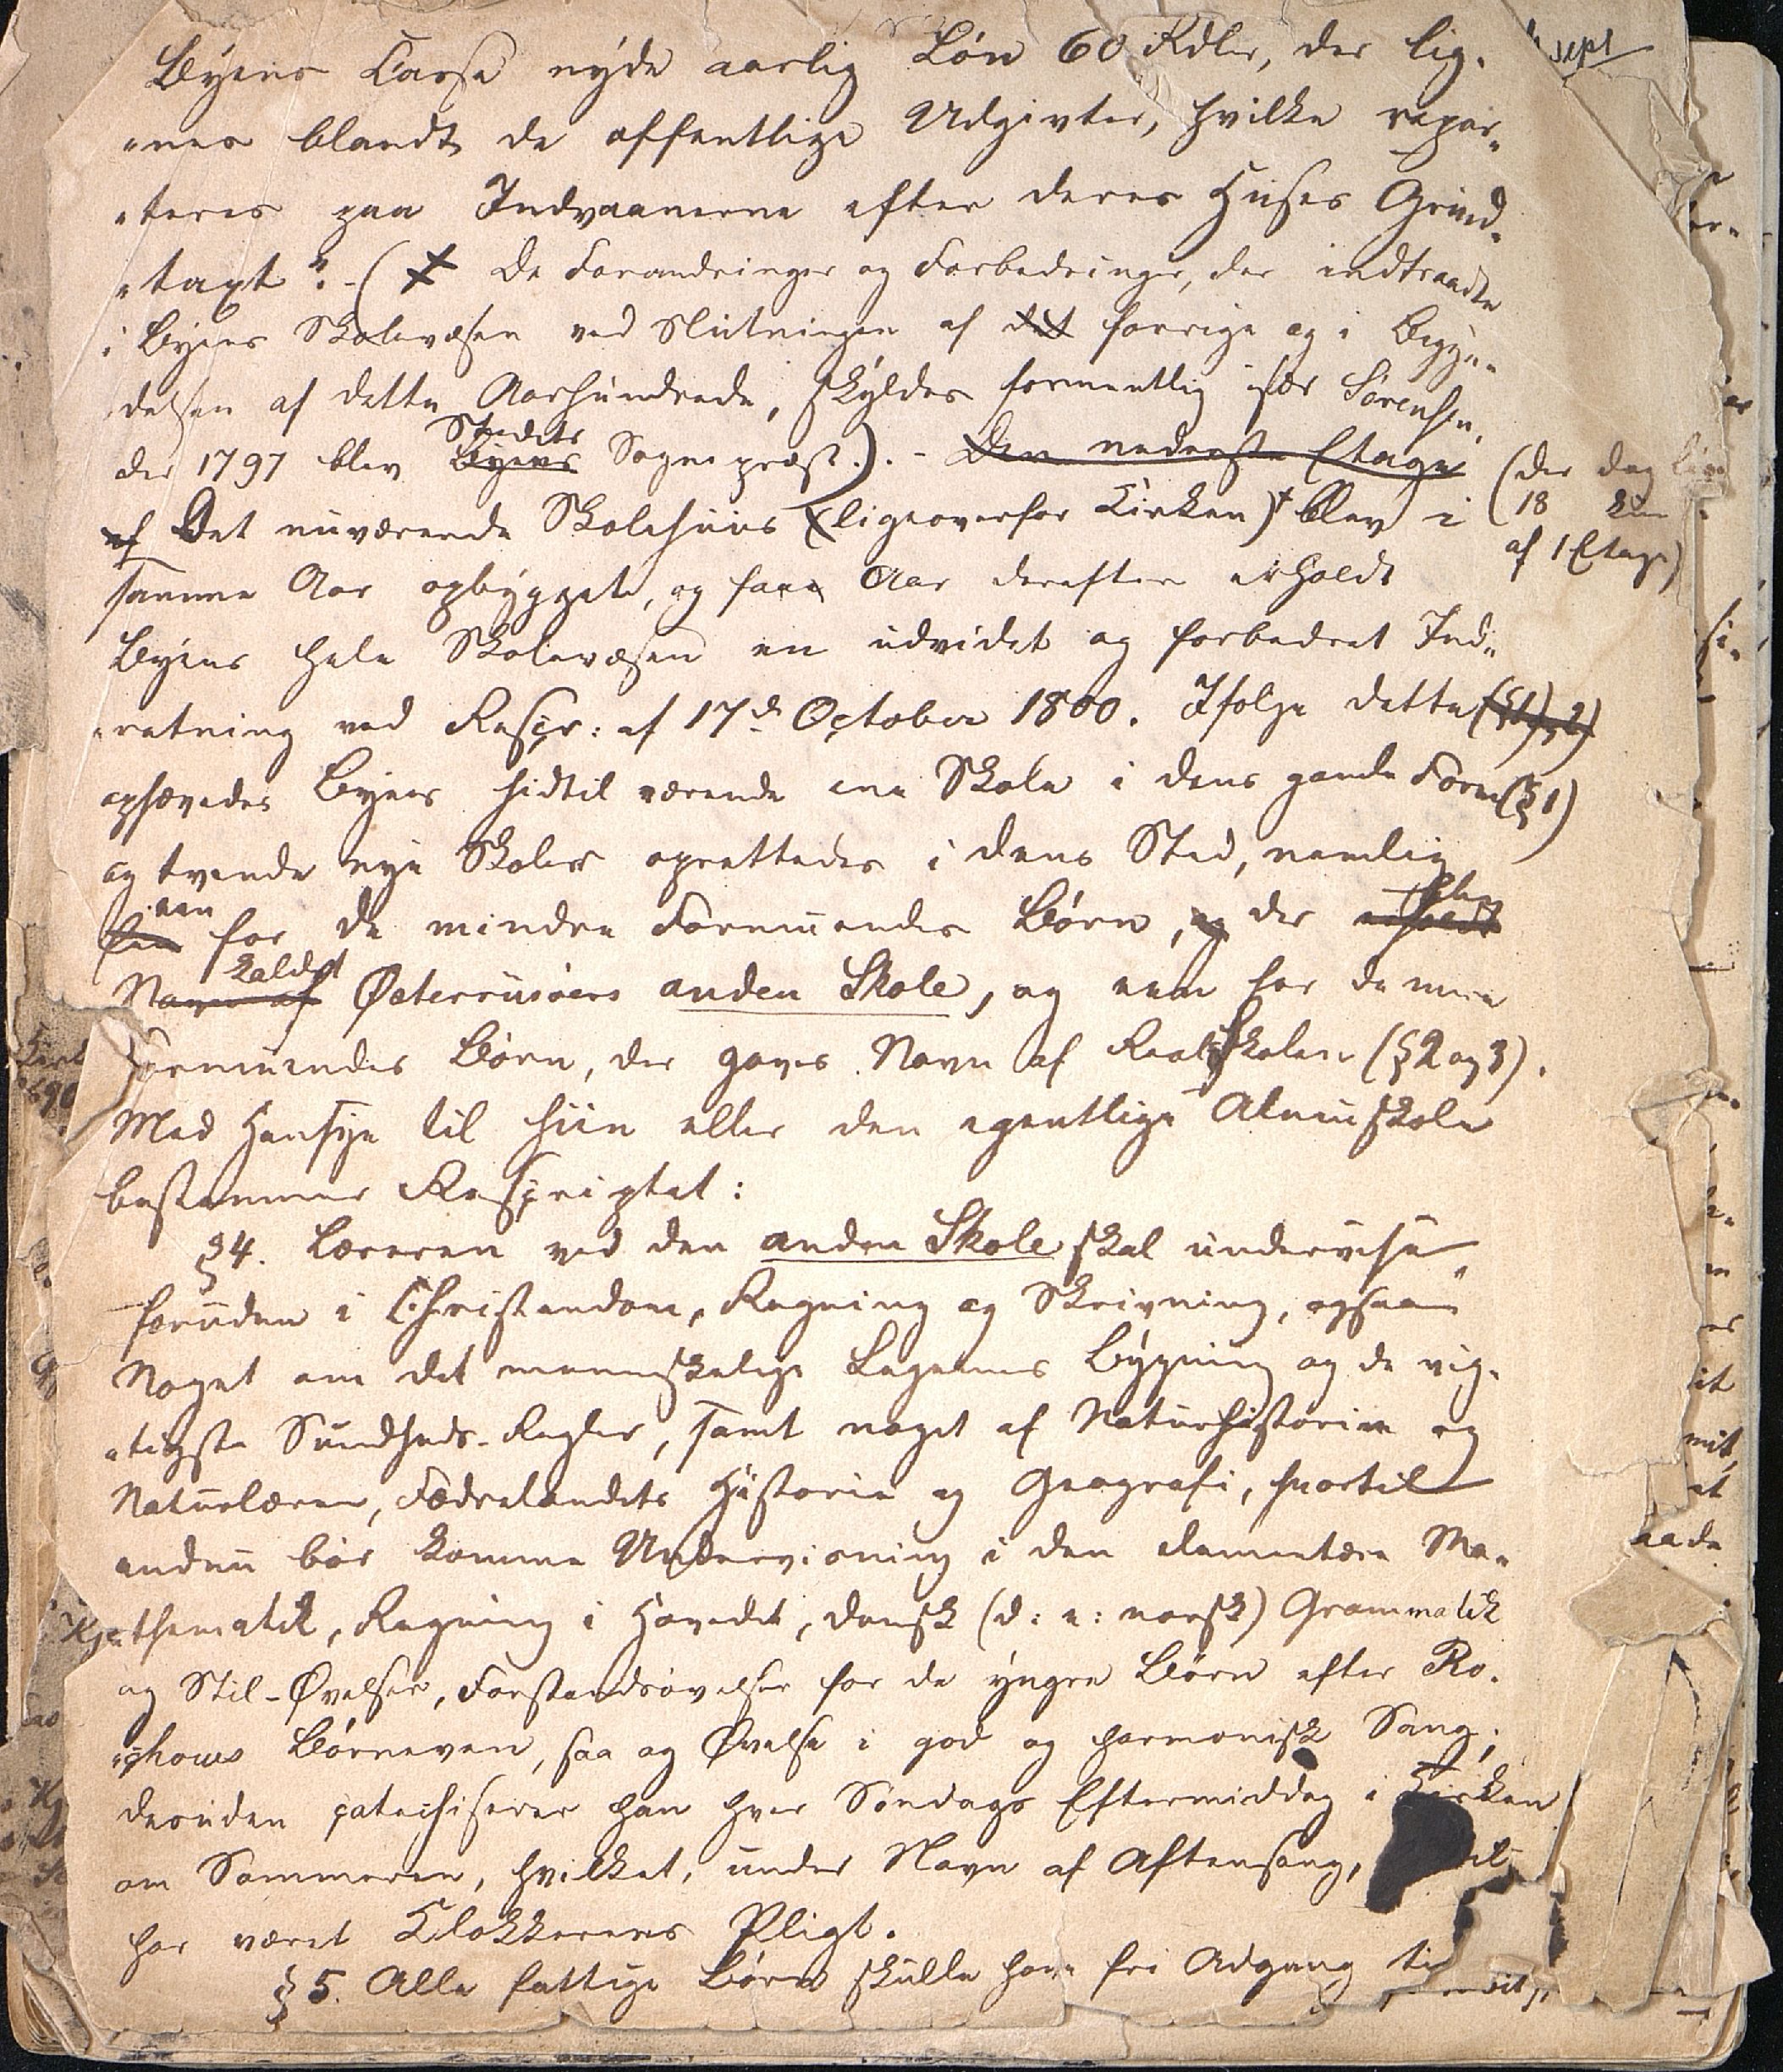 Byens Casse nyde aarlig Løn 60 Rdlr, der lig-
„nes blandt de offentlige Udgivter, hvilke repar„
„teres paa Indvaanerne efter deres Huses Grund„
„taxt“. - ( De Forandringer og Forbedringer, der indtraadte
i Byens Skolevæsen ved Slutningen af det forrige og i Begyn„
delsen af dette Aarhundrede, skyldes formentlig især Sørensen,
der 1797 blev Byens Stedets Sognepræst.). - Den nederste Etage
af Det nuværende Skolehuus (ligeoverfor Kirken) blev i (der dog
18
af 1 Etage)
samme Aar opbygget, og faae Aar derefter erholdt
Byens hele Skolevæsen en udvidet og forbedret Ind„
„retning ved Rescr: af 17d October 1800. Ifølge dette
ophævedes Byens hidtil værende ene Skole i dens gamle Form (§1)
og tvende nye Skoler oprettedes i dens Sted, nemlig
een for de mindre Formuendes Børn, og der blev erholdt
Navn af kaldet Østerriisøers anden Skole, og een for de mere
Formuendes Børn, der gaves Navn af Realskolen (§2 og 3).
Med Hensyn til hiin eller den egentlige Almuskole
bestemmer Rescriptet:
§4. Læreren ved den anden Skole skal undervise,
foruden i Christendom, Regning og Skrivning, ogsaa
Noget om det menneskelige Legemes Bygning og de vig„
„tigste Sundheds-Regler, samt noget af Naturhistorien og
Naturlæren, Fædrelandets Historie og Geografi, hvortil
endnu bør komme Undervisning i den elementære Ma„
thematik, Regning i Hovedet, dansk (d: e: norsk) Grammatik
og Stil-Øvelser, Forstandsøvelser for de yngre Børn efter Ro-
„chows Børneven, saa og Øvelse i god og harmonisk Sang;
desuden catechiserer han hver Søndags Eftermiddag i Kirken
om Sommeren, hvilket, under Navn af Aftensang,
har været Klokkerens Pligt.
§5. Alle fattige Børn skulle have fri Adgang